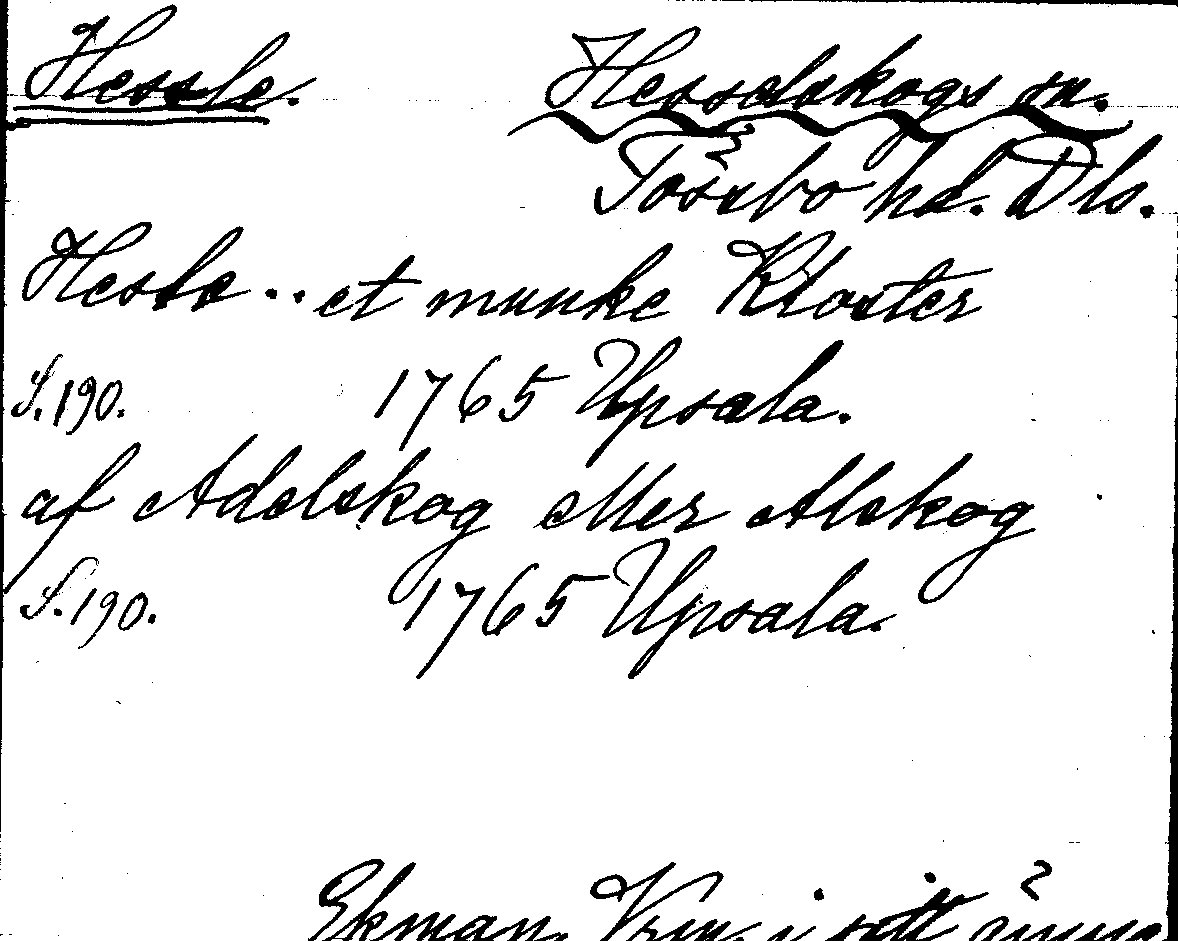 Hessle. Hesselskogs sn.
Tössbo hd. Dls.
Hesle .. et munke Kloster
S. 190. 1765 Upsala.
af Adelskog eller Alskog
S. 190. 1765 Upsala.
Ekman, i sitt